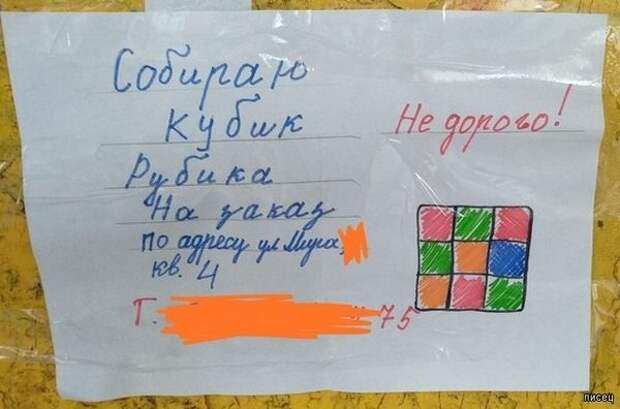 Собираю
кубик
Не дорого!
Рубика
На заказ
по адресу ул Мира,
кв. 4
Т. 75
писец